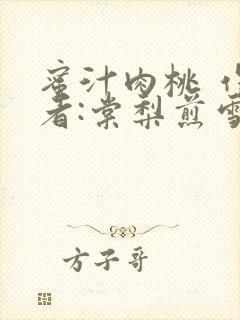 蜜汁肉桃 作
者:棠梨煎雪
方子哥